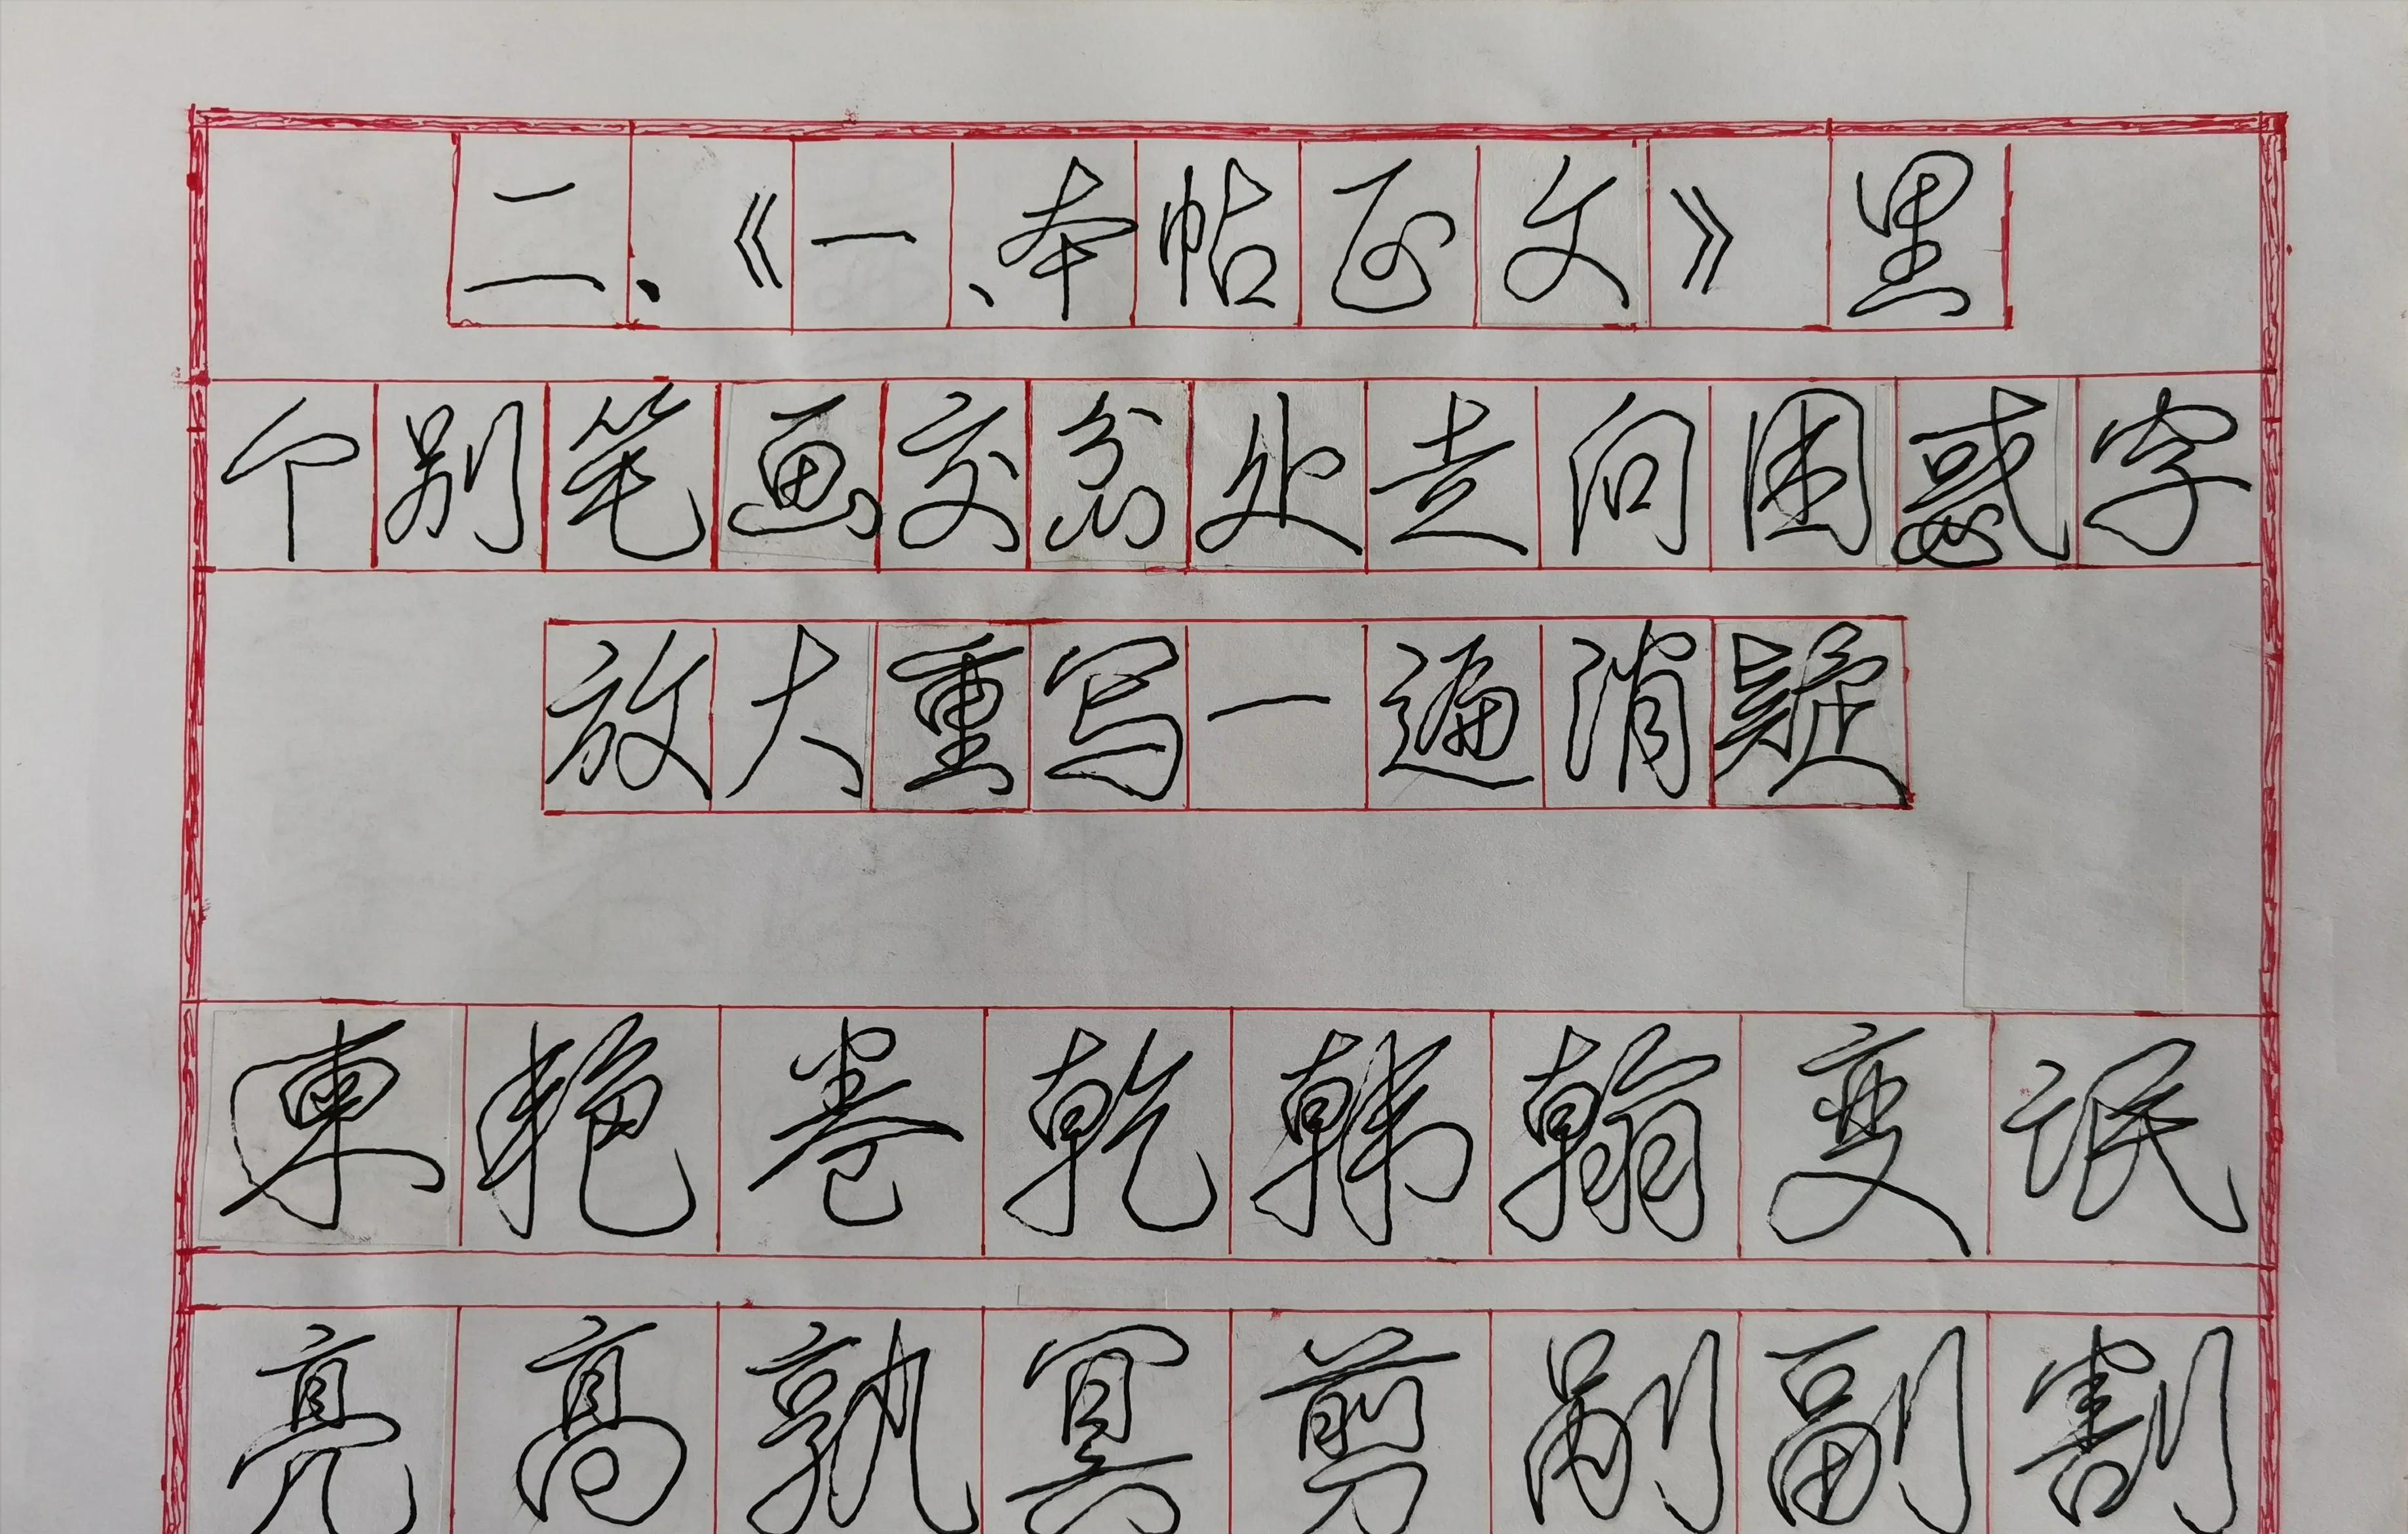 二、《一、本帖正文》里
个别笔画交叉处走向困惑字
放大重写一遍消疑
艳卷乾韩翰变氓
亮高孰冥剪剐副割